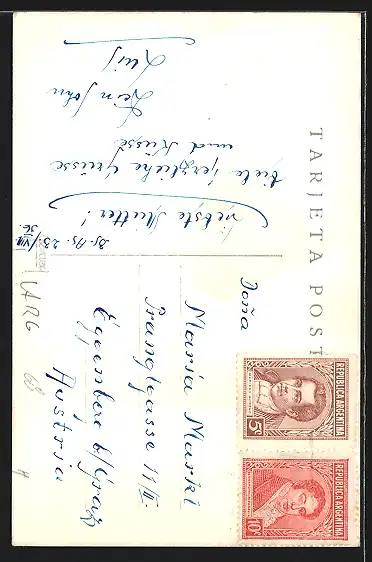 TARJETA POST
Bs. As. 23/VII 36
Liebste Mutter!
Viele herzliche Grüsse
und Küsse
Dein Sohn
Luis
Doña
Maria Markl
Prangkgasse 11/II
Eggenberg b/Graz
Austria
ARG
REPUBLICA ARGENTINA
5c
REPUBLICA ARGENTINA
10c